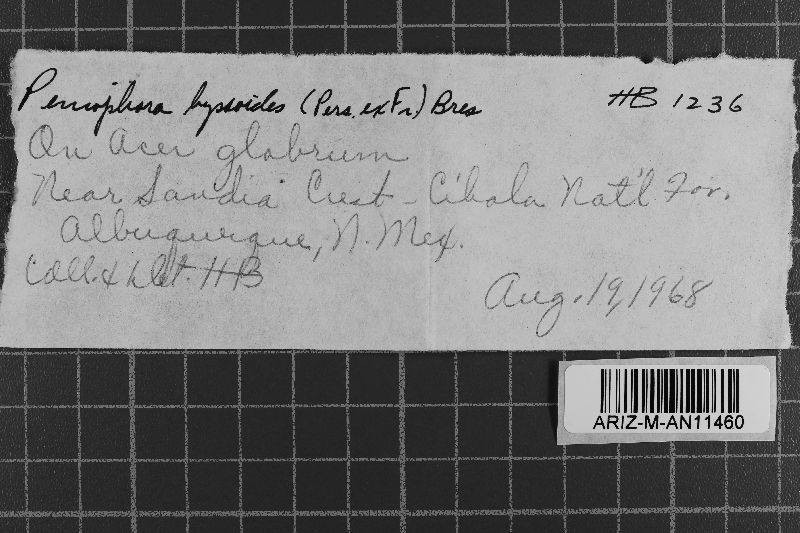 Peniophora byssoides (Pers. ex Fr.) Bres HB 1236
On Acer glabrum
Near Sandia Crest - Cibola Nat'l For.
Albuquerque, N. Mex.
Coll. & Det. HB
Aug. 19, 1968
ARIZ-M-AN11460